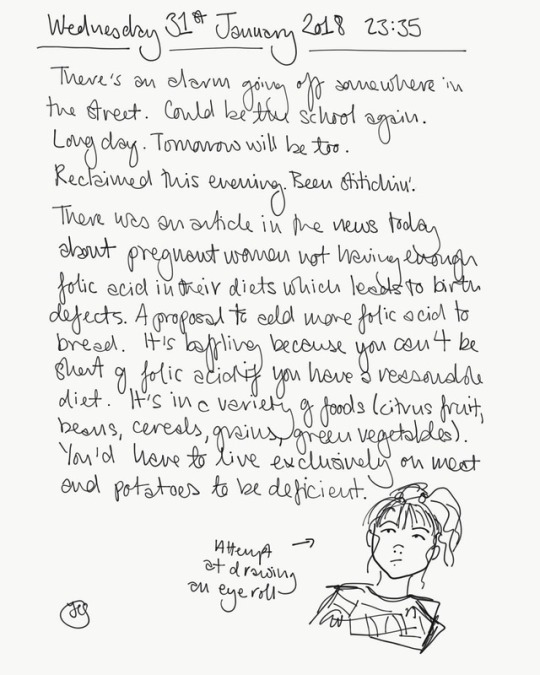 Wednesday 31st January 2018 23:35
There's an alarm going off somewhere in
the street. Could be the school again.
Long day. Tomorrow will be too.
Reclaimed this evening. Been stitchin'.
There was an article in the news today
about pregnant women not having enough
folic acid in their diets which leads to birth
defects. A proposal to add more folic acid to
bread. It's baffling because you can't be
short of folic acid if you have a reasonable
diet. It's in a variety of foods (citrus fruit,
beans, cereals, grains, green vegetables).
You'd have to live exclusively on meat
and potatoes to be deficient.
Attempt
at drawing
an eyeroll